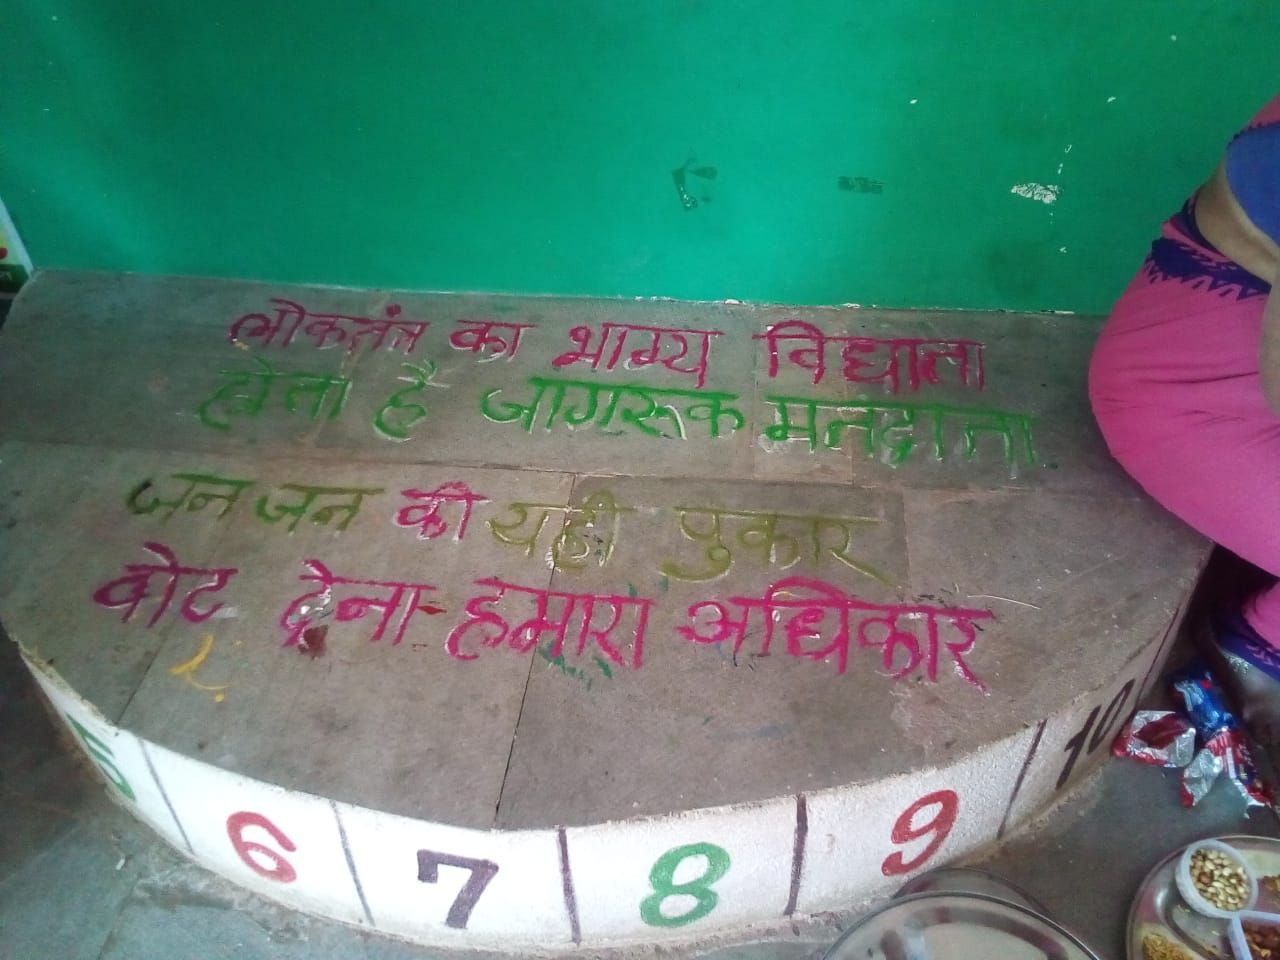 लोकतंत्र का भाग्य विधाता
होता है जागरूक मतदाता
जन जन की यही पुकार
वोट देना हमारा अधिकार
5 6 7 8 9 10